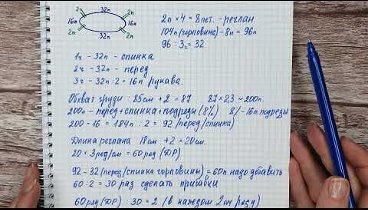 32п
2п 2п
16п 16п
2п 2п
32п
2п × 4 = 8 пет. - реглан
104п (горловина) - 8п = 96п
96 : 3 = 32
1ч - 32п - спинка
2ч - 32п - перед
3ч - 32п : 2 = 16п рукава
Обхват груди - 85см + 2 = 87 87 × 2,3 = 200п.
200п = перед + спинка + подрезы (8%) 8% - 16п подрезы
200 - 16 = 184п : 2 = 92 (перед/спинка)
Длина реглана 18см + 2 = 20см.
20 × 3 ряд/см = 60 ряд (ЧР)
92 - 32 (перед/спинка горловины) = 60п надо добавить
60 : 2 = 30 раз сделать прибавки
60 ряд (ЧР) : 30 = 2 (в каждом 2ом ряду)